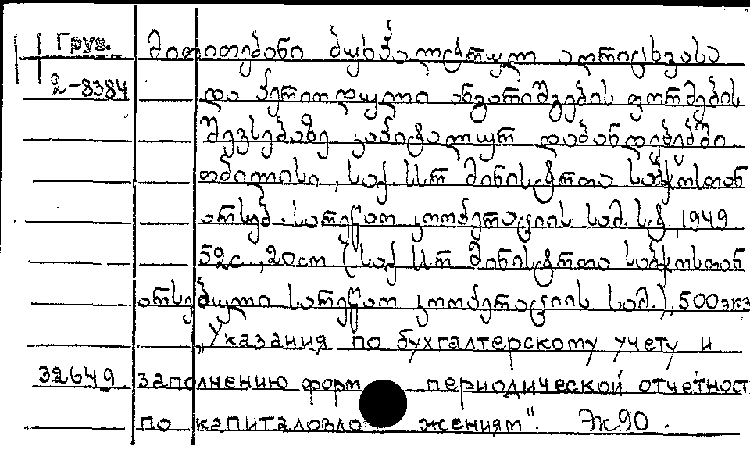 Груз. მითითებანი ბუხჰალტრულ აღრიცხვასა
2-8384 და პერიოდული ანგარიშგების ფორმების
შევსებაზე კაპიტალურ დაბანდებებში
თბილისი, საქ. სსრ მინისტრთა საბჭოსთან
არსებ. სარეწაო კოოპერაციის სამ. სტ, 1949
52с., 20cm (საქ. სსრ მინისტრთა საბჭოსთან
არსებული სარეწაო კოოპერაციის სამ.), 500экз
„Указания по бухгалтерскому учету и
32649 заполнению форм периодической отчетност
по капиталовло жениям". Эк90.